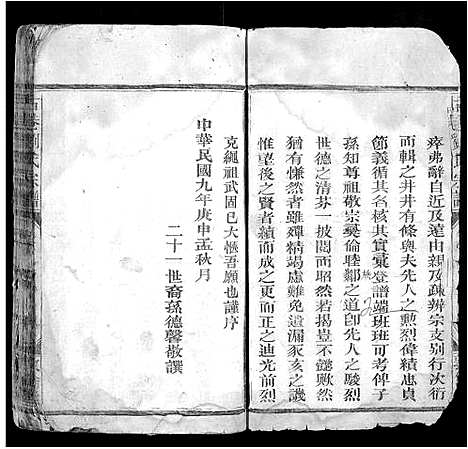 瘁弗辭自近及遠由親及疎辨宗支別行次衍
而輯之井井有條與夫先人之勲烈偉績忠貞
節義循其名核其實彙登譜端班班可考俾子
孫知尊祖敬宗彝倫睦鄰之道卽先人之駿烈
世德之清芬一披閲而昭然若揭豈不懿歟然
猶有慊然者雖殫精竭慮難免遺漏豕亥之譏
惟望後之賢者續而成之更而正之迪光前烈
克繩祖武固已大愜吾願也謹序
中華民國九年庚申孟秋月
二十一世裔孫德馨敬譔
劉氏宗譜